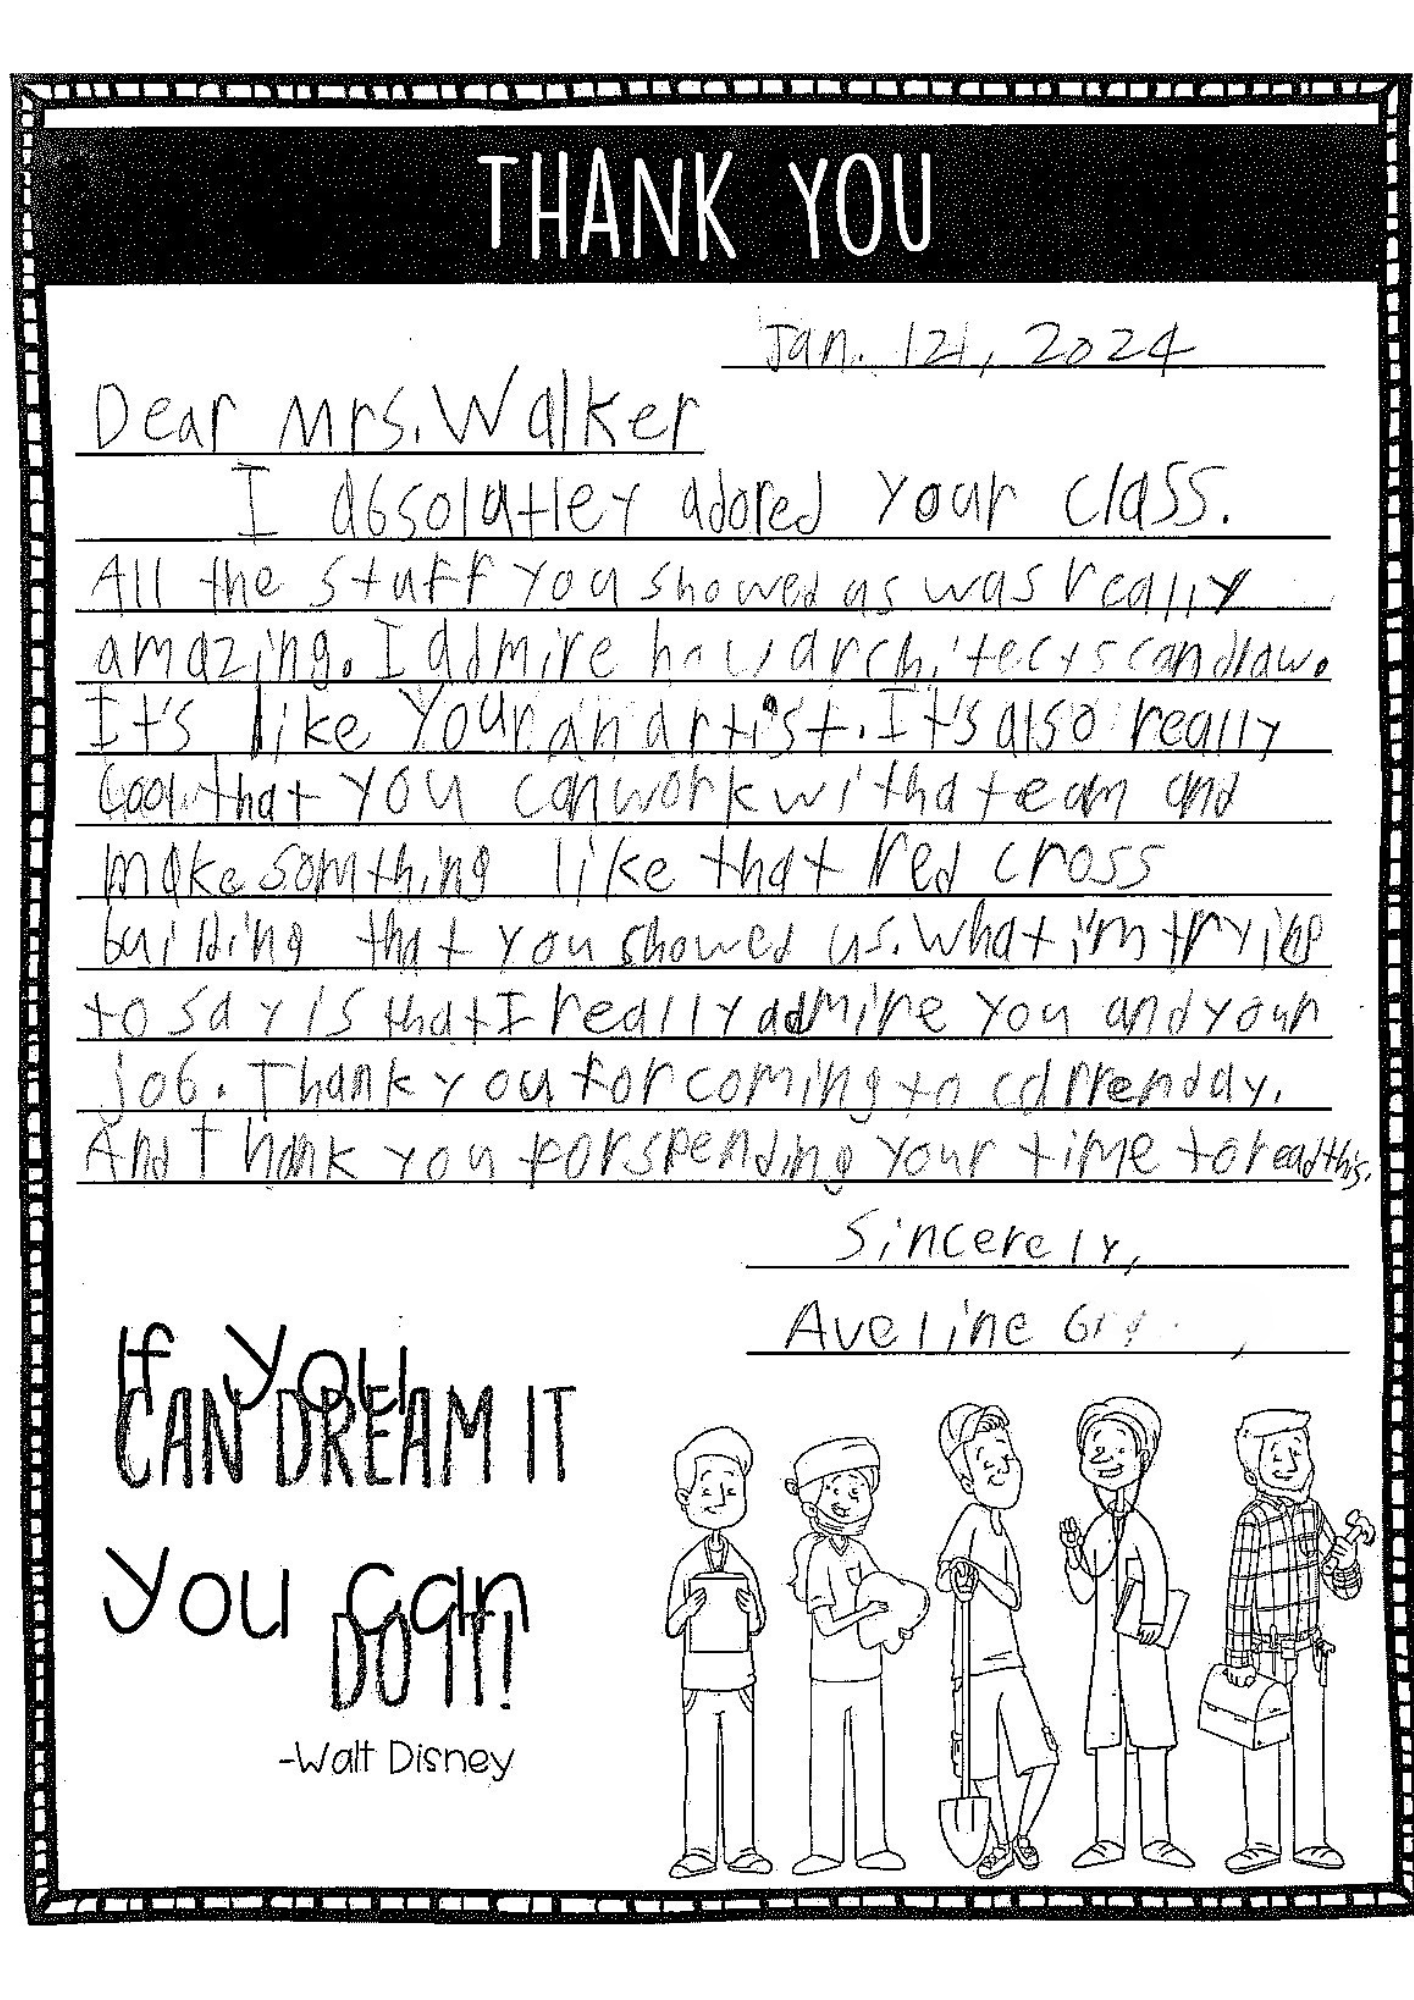 THANK YOU
Jan. 121, 2024
Dear Mrs. Walker
I absolutley adored your class.
All the stuff you showed us was really
amazing. I admire how architects can draw.
It's like your an artist. It's also really
cool that you can work with a team and
make somthing like that red cross
building that you showed us. What i'm trying
to say is that I really admire you and your
job. Thank you for coming to carrenday.
And Thank you for spending your time to read this.
Sincerely,
Aveline
If you
CAN DREAM IT
you can
DO IT!
-Walt Disney